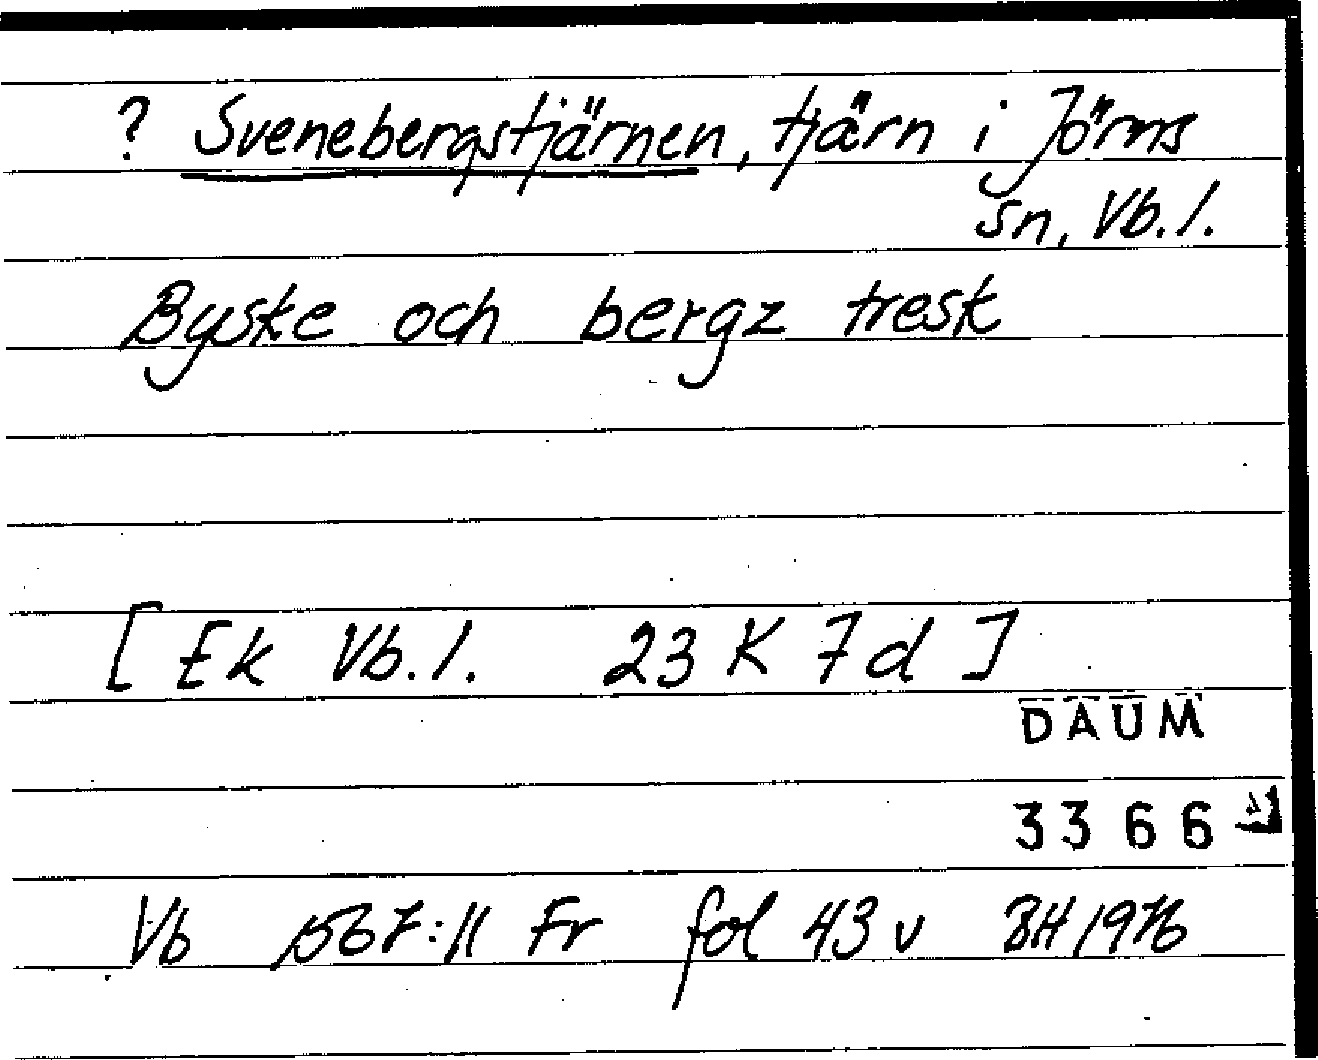 ? Svenebergstjärnen, tjärn i Jörns
sn, Vb.l.
Byske och bergz tresk
[Ek Vb.l. 23 K 7d]
DAUM
3366
Vb 1567:11 Fr fol 43 v BH 1976